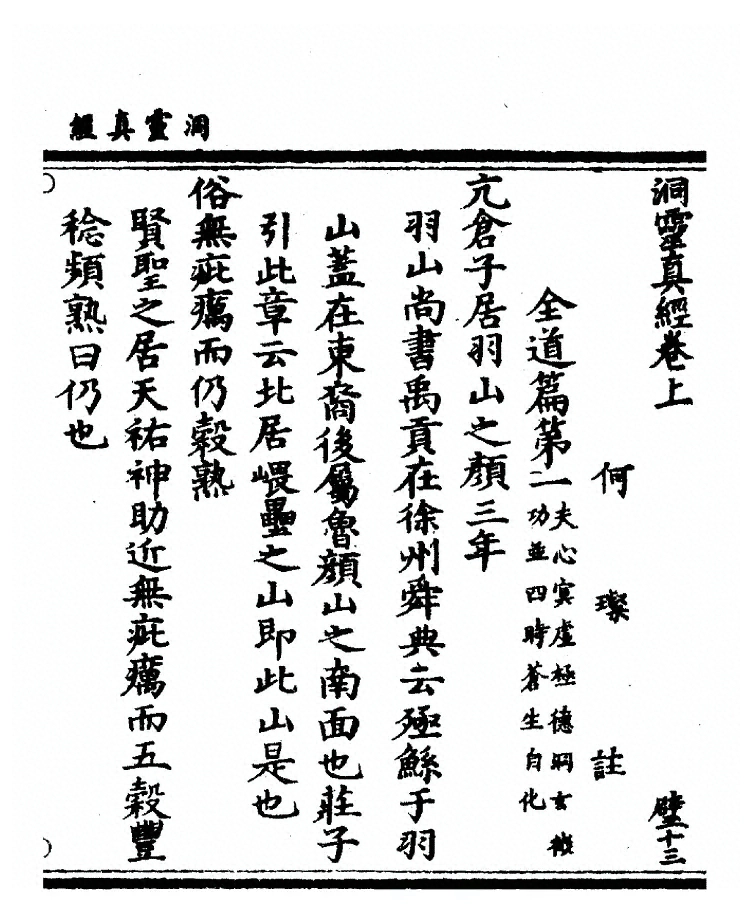 洞靈真經
洞靈真經卷上
壁十三
何璨註
全道篇第一
夫心冥虛極德洞玄微
功並四時蒼生自化
亢倉子居羽山之顏三年
羽山尚書禹貢在徐州舜典云殛鯀于羽
山蓋在東裔後屬魯顏山之南面也莊子
引此章云北居嵔壘之山即此山是也
俗無疵癘而仍穀熟
賢聖之居天祐神助近無疵癘而五穀豐
稔頻熟曰仍也